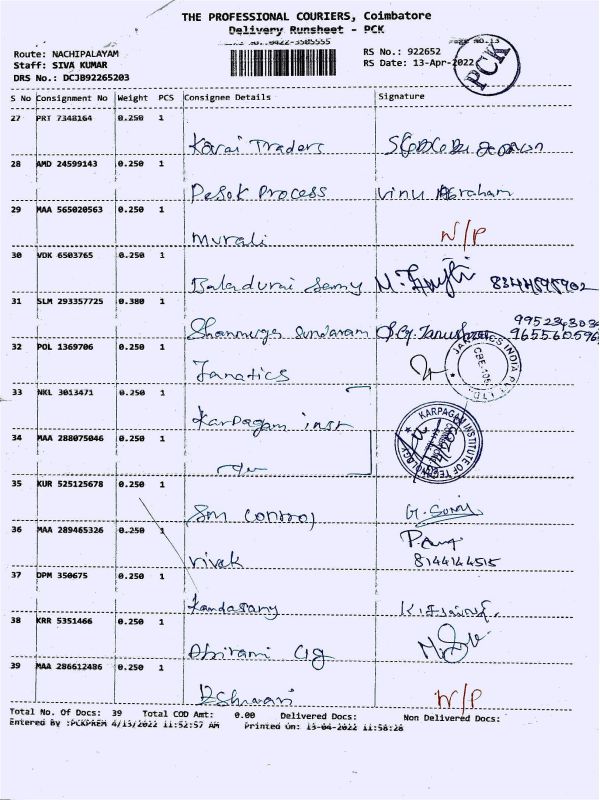 THE PROFESSIONAL COURIERS, Coimbatore
Delivery Runsheet - PCK
Page No.13
Route: NACHIPALAYAM
Staff: SIVA KUMAR
DRS No.: DCJB92265203
RS No.: 922652
RS Date: 13-Apr-2022
PCK
S No Consignment No Weight PCS Consignee Details Signature
27 PRT 7348164 0.250 1
Karai Traders
28 AMD 24599143 0.250 1
Pesok Process Vinu Abraham
29 MAA 565020563 0.250 1
Murali N/P
30 VDK 6503765 0.250 1
Baladurai Samy
31 SLM 293357725 0.380 1
Shanmuga Sundaram
32 POL 1369706 0.250 1
Janatics
JANATICS INDIA PVT LTD
33 NKL 3013471 0.250 1
Karpagam inst
KARPAGAM INSTITUTE OF TECHNOLOGY
34 MAA 288075046 0.250 1
35 KUR 525125678 0.250 1
Sm Control
36 MAA 289465326 0.250 1
Vivek
8144144515
37 DPM 350675 0.250 1
Kandasamy
38 KRR 5351466 0.250 1
Abirami
39 MAA 286612486 0.250 1
Eshwari N/P
Total No. Of Docs: 39 Total COD Amt: 0.00 Delivered Docs: Non Delivered Docs:
Entered By :PCKPREM 4/13/2022 11:52:57 AM Printed On: 13-04-2022 11:58:28